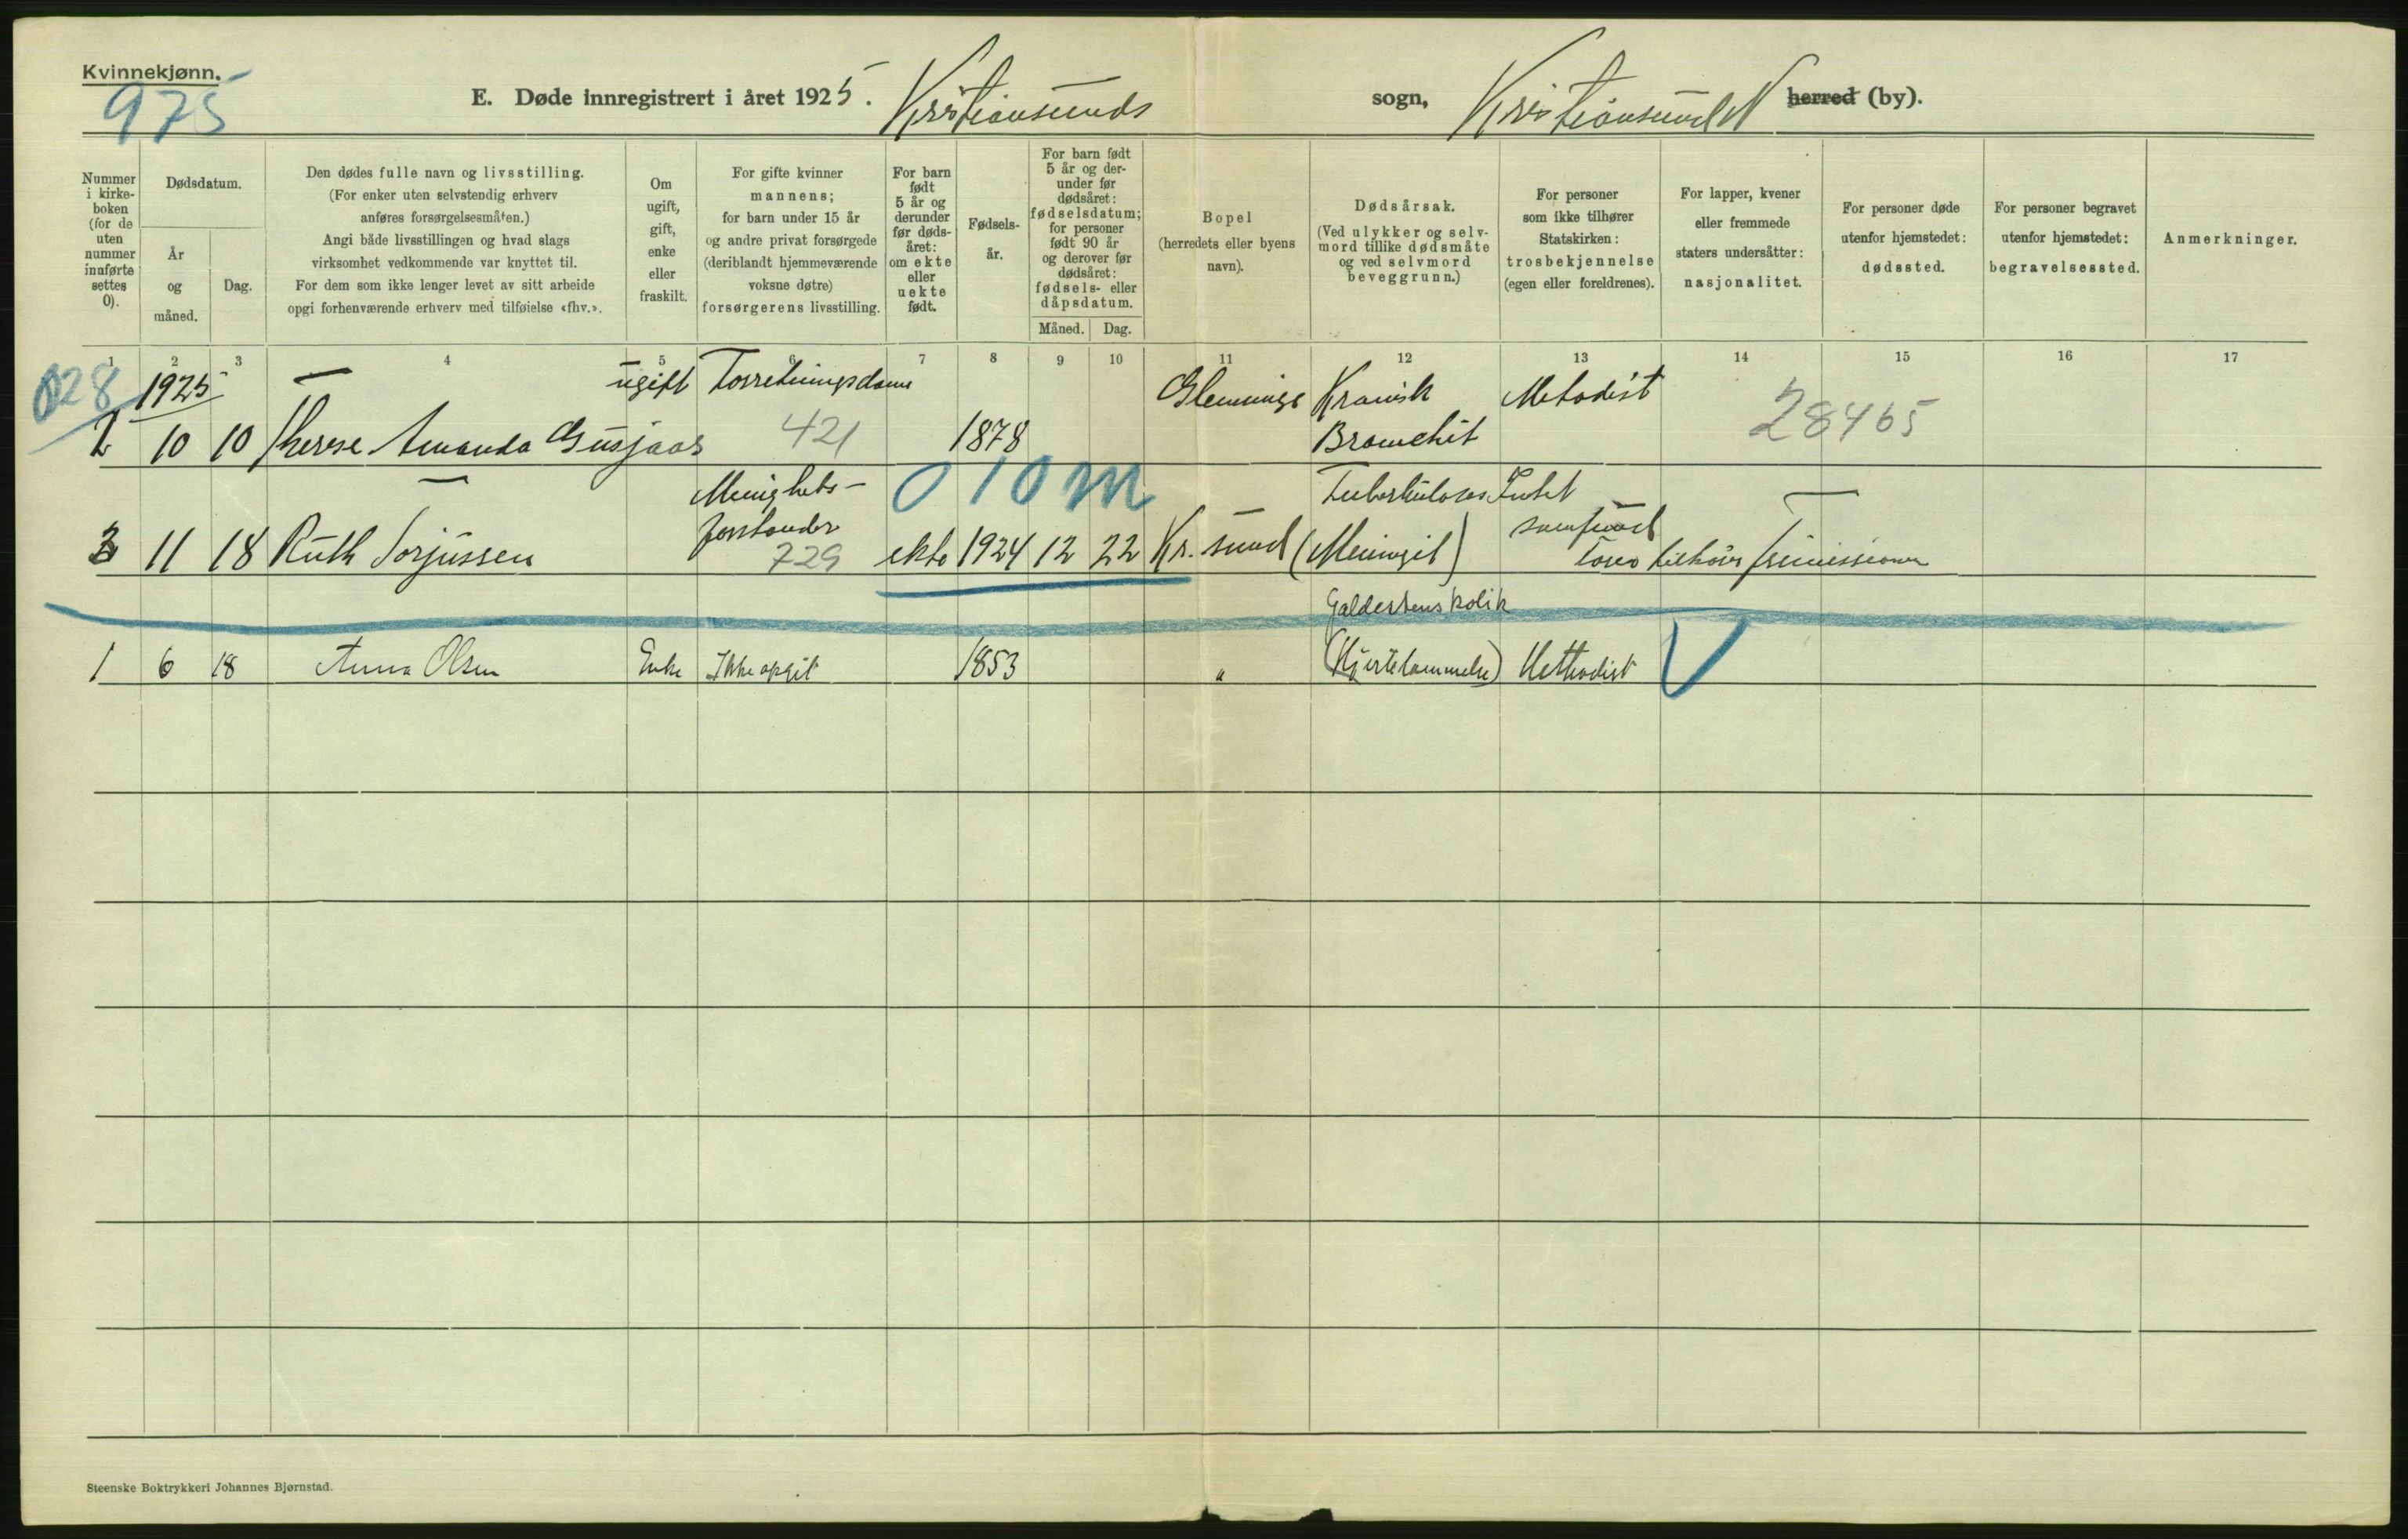 Kvinnekjønn.
975
E. Døde innregistrert i året 1925. Kristiansunds sogn, Kristiansund N herred (by).
Nummer i kirkeboken (for de uten nummer innførte settes 0).
Dødsdatum.
År og måned.
Dag.
Den dødes fulle navn og livsstilling.
(For enker uten selvstendig erhverv
anføres forsørgelsesmåten.)
Angi både livsstillingen og hvad slags
virksomhet vedkommende var knyttet til.
For dem som ikke lenger levet av sitt arbeide
opgi forhenværende erhverv med tilføielse «fhv.».
Om
ugift,
gift,
enke
eller
fraskilt.
For gifte kvinner
mannens;
for barn under 15 år
og andre privat forsørgede
(deriblandt hjemmeværende
voksne døtre)
forsørgerens livsstilling.
For barn
født
5 år og
derunder
før døds-
året:
om ekte
eller
uekte
født.
Fødsels-
år.
For barn født
5 år og der-
under før
dødsåret:
fødselsdatum;
for personer
født 90 år
og derover før
dødsåret:
fødsels- eller
dåpsdatum.
Måned. Dag.
Bopel
(herredets eller byens
navn).
Dødsårsak.
(Ved ulykker og selv-
mord tillike dødsmåte
og ved selvmord
beveggrunn.)
For personer
som ikke tilhører
Statskirken:
trosbekjennelse
(egen eller foreldrenes).
For lapper, kvener
eller fremmede
staters undersåtter:
nasjonalitet.
For personer døde
utenfor hjemstedet:
dødssted.
For personer begravet
utenfor hjemstedet:
begravelsessted.
Anmerkninger.
1 2 3 4 5 6 7 8 9 10 11 12 13 14 15 16 17
028 1925 ugift Forretningsdame Glemminge Kronisk Metodist
2 10 10 Therese Amanda Gusjaas 421 1878 Bronchit 28465
Menighets- 010 m Tuberkulosos Intet
3 11 18 Ruth Sorjussen forstander 729 ekte 1924 12 22 Kr. sund (Meningit) samfund
Galdestenskolik
1 6 18 Anna Olsen Enke Ikke opgit 1853 " (Hjertelammelse) Methodist
Steenske Boktrykkeri Johannes Bjørnstad.